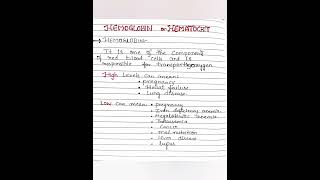 HEMOGLOBIN or HEMATOCRIT
→ HEMOGLOBIN-
It is one of the component
of red blood cells and is
responsible for transport oxygen
High levels can mean:
• pregnancy
• Heart failure
• Lung disease
Low can mean • pregnancy
• Iron deficiency anemia
• Megaloblastic anemia
• Thalassemia
• Cancer
• malnutrition
• disease
• lupus